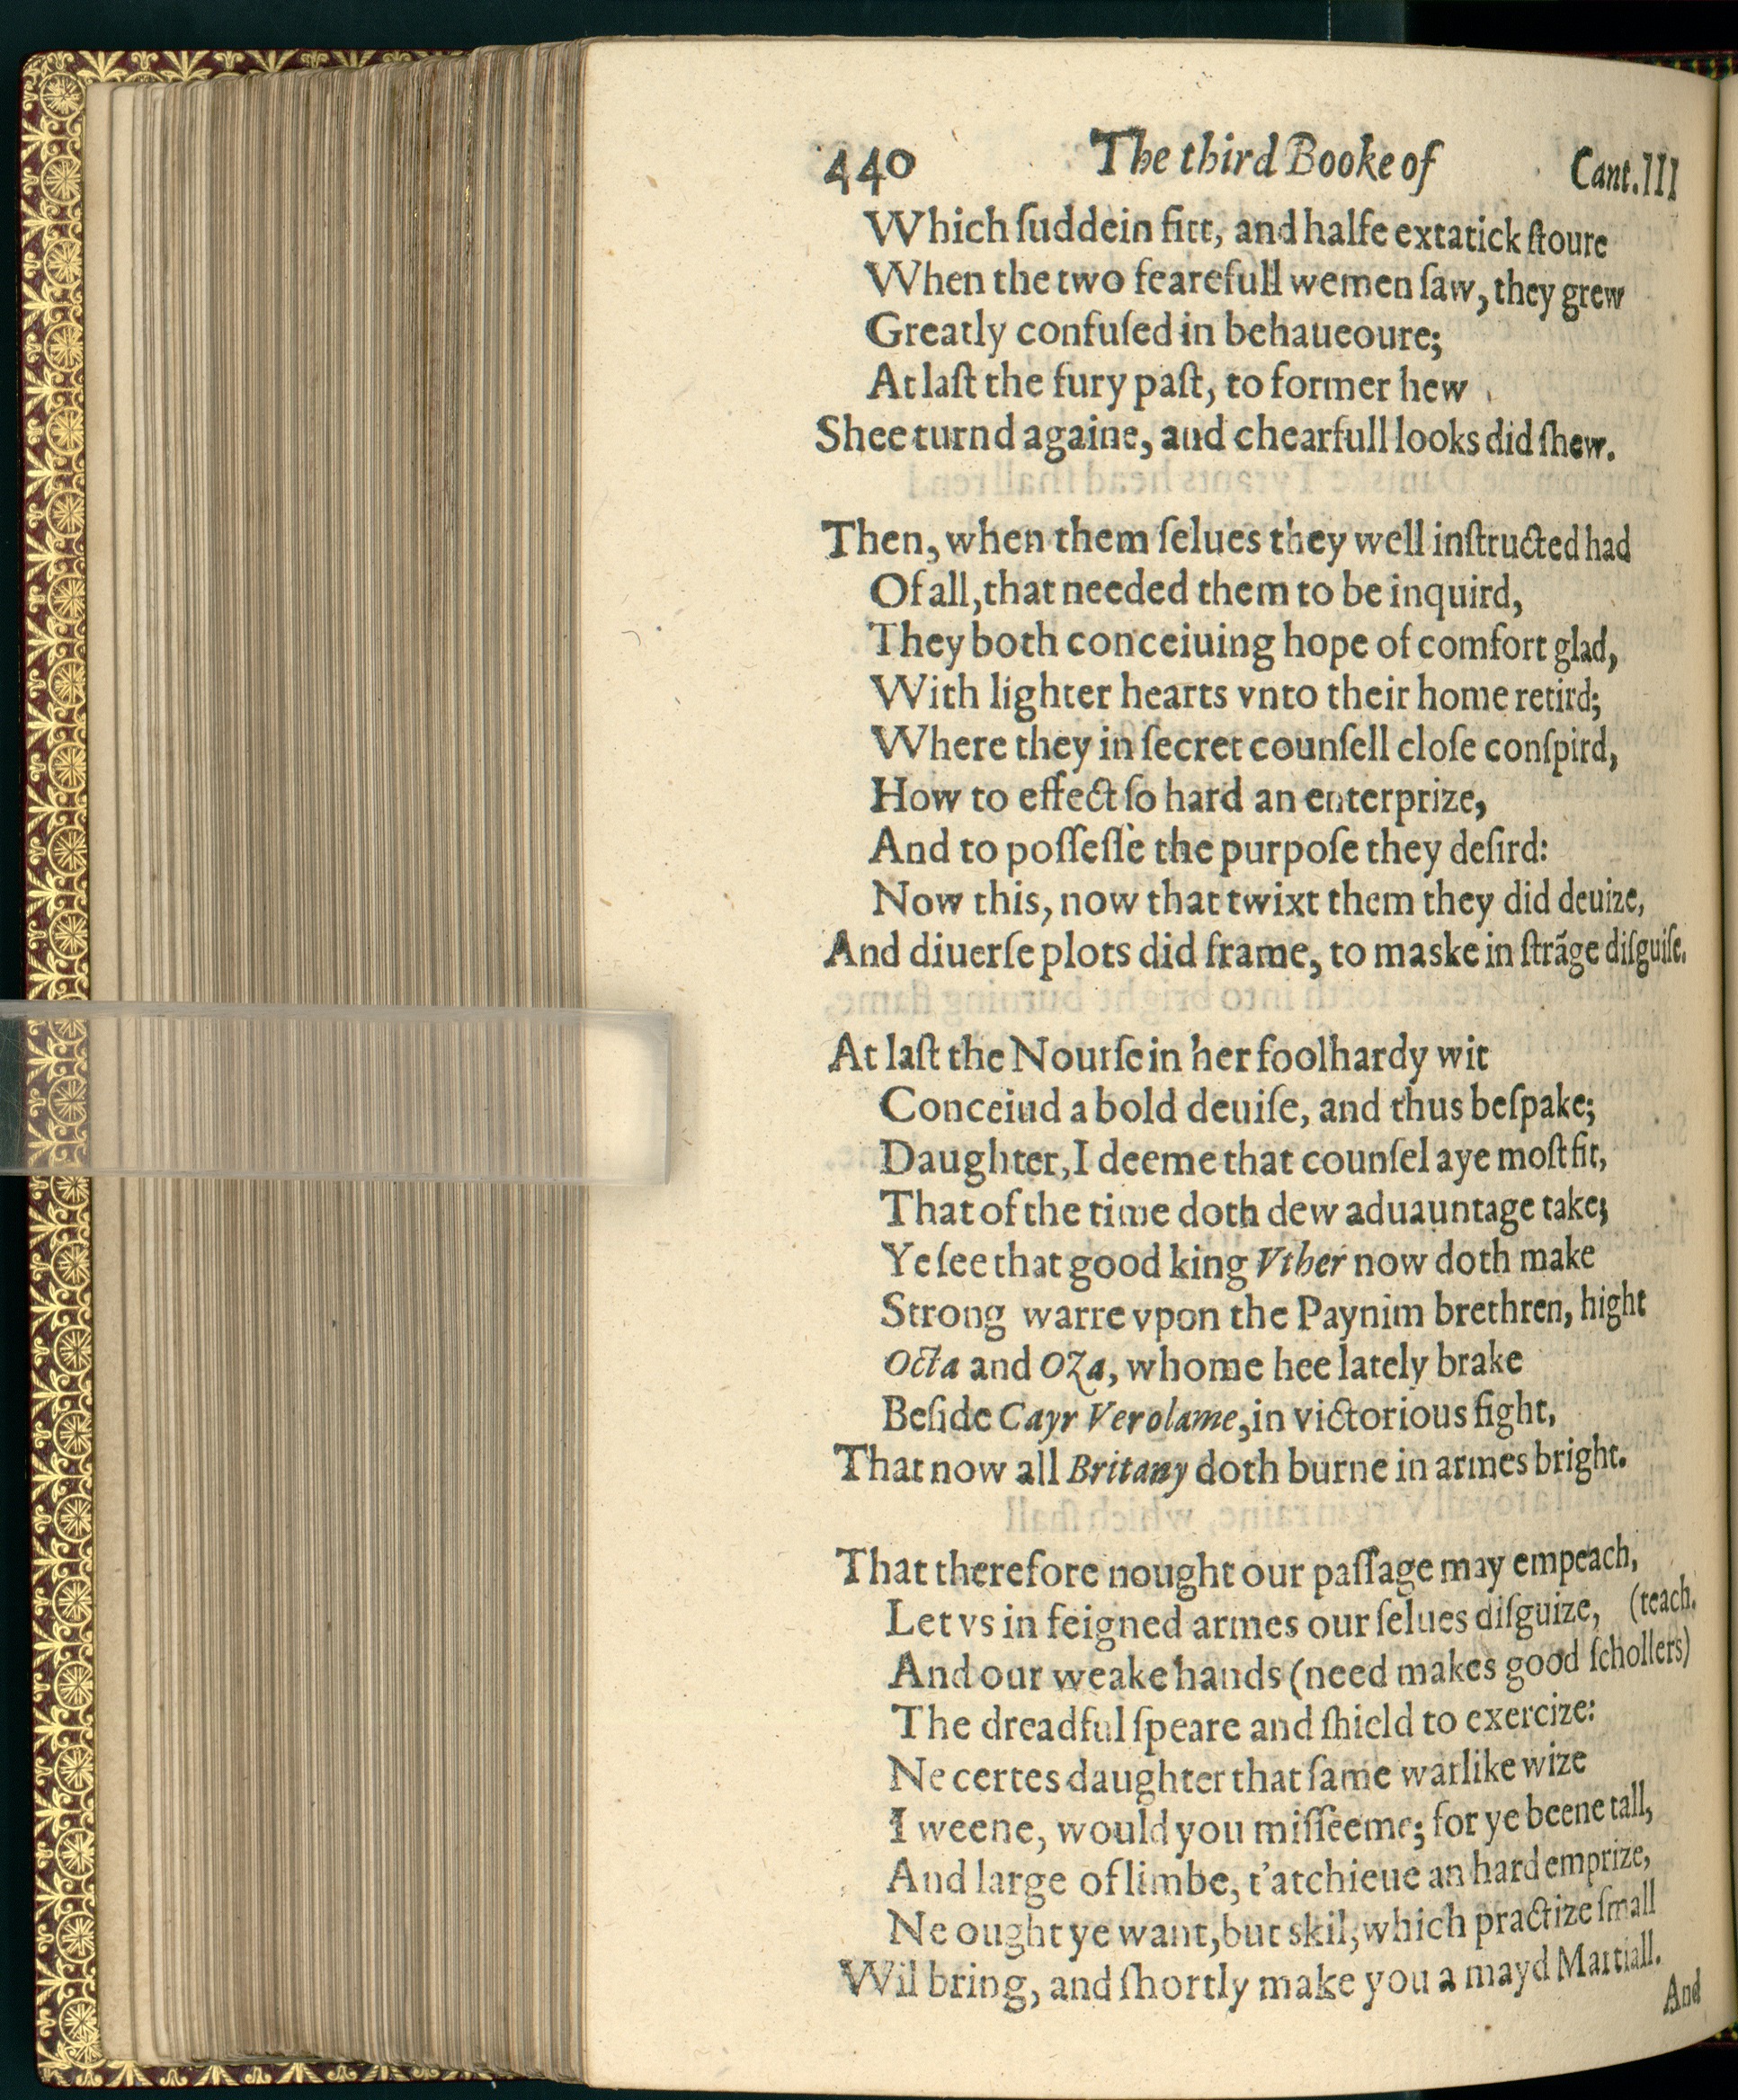 440 The third Booke of Cant.III
Which ſuddein fitt, and halfe extatick ſtoure
When the two fearefull wemen ſaw, they grew
Greatly confuſed in behaueoure;
At laſt the fury paſt, to former hew
Shee turnd againe, and chearfull looks did ſhew.
Then, when them ſelues they well inſtructed had
Of all, that needed them to be inquird,
They both conceiuing hope of comfort glad,
With lighter hearts vnto their home retird;
Where they in ſecret counſell cloſe conſpird,
How to effect ſo hard an enterprize,
And to poſſeſſe the purpoſe they deſird:
Now this, now that twixt them they did deuize,
And diuerſe plots did frame, to maske in ſtrãge diſguiſe.
At laſt the Nourſe in her foolhardy wit
Conceiud a bold deuiſe, and thus beſpake;
Daughter, I deeme that counſel aye moſt fit,
That of the time doth dew aduauntage take;
Ye ſee that good king Vther now doth make
Strong warre vpon the Paynim brethren, hight
Octa and Oza, whome hee lately brake
Beſide Cayr Verolame, in victorious fight,
That now all Britany doth burne in armes bright.
That therefore nought our paſſage may empeach,
Let vs in feigned armes our ſelues diſguize, (teach.
And our weake hands (need makes good ſchollers)
The dreadful ſpeare and ſhield to exercize:
Ne certes daughter that ſame warlike wize
I weene, would you miſſeeme; for ye beene tall,
And large of limbe, t'atchieue an hard emprize,
Ne ought ye want, but skil, which practize ſmall
Wil bring, and ſhortly make you a mayd Martiall.
And